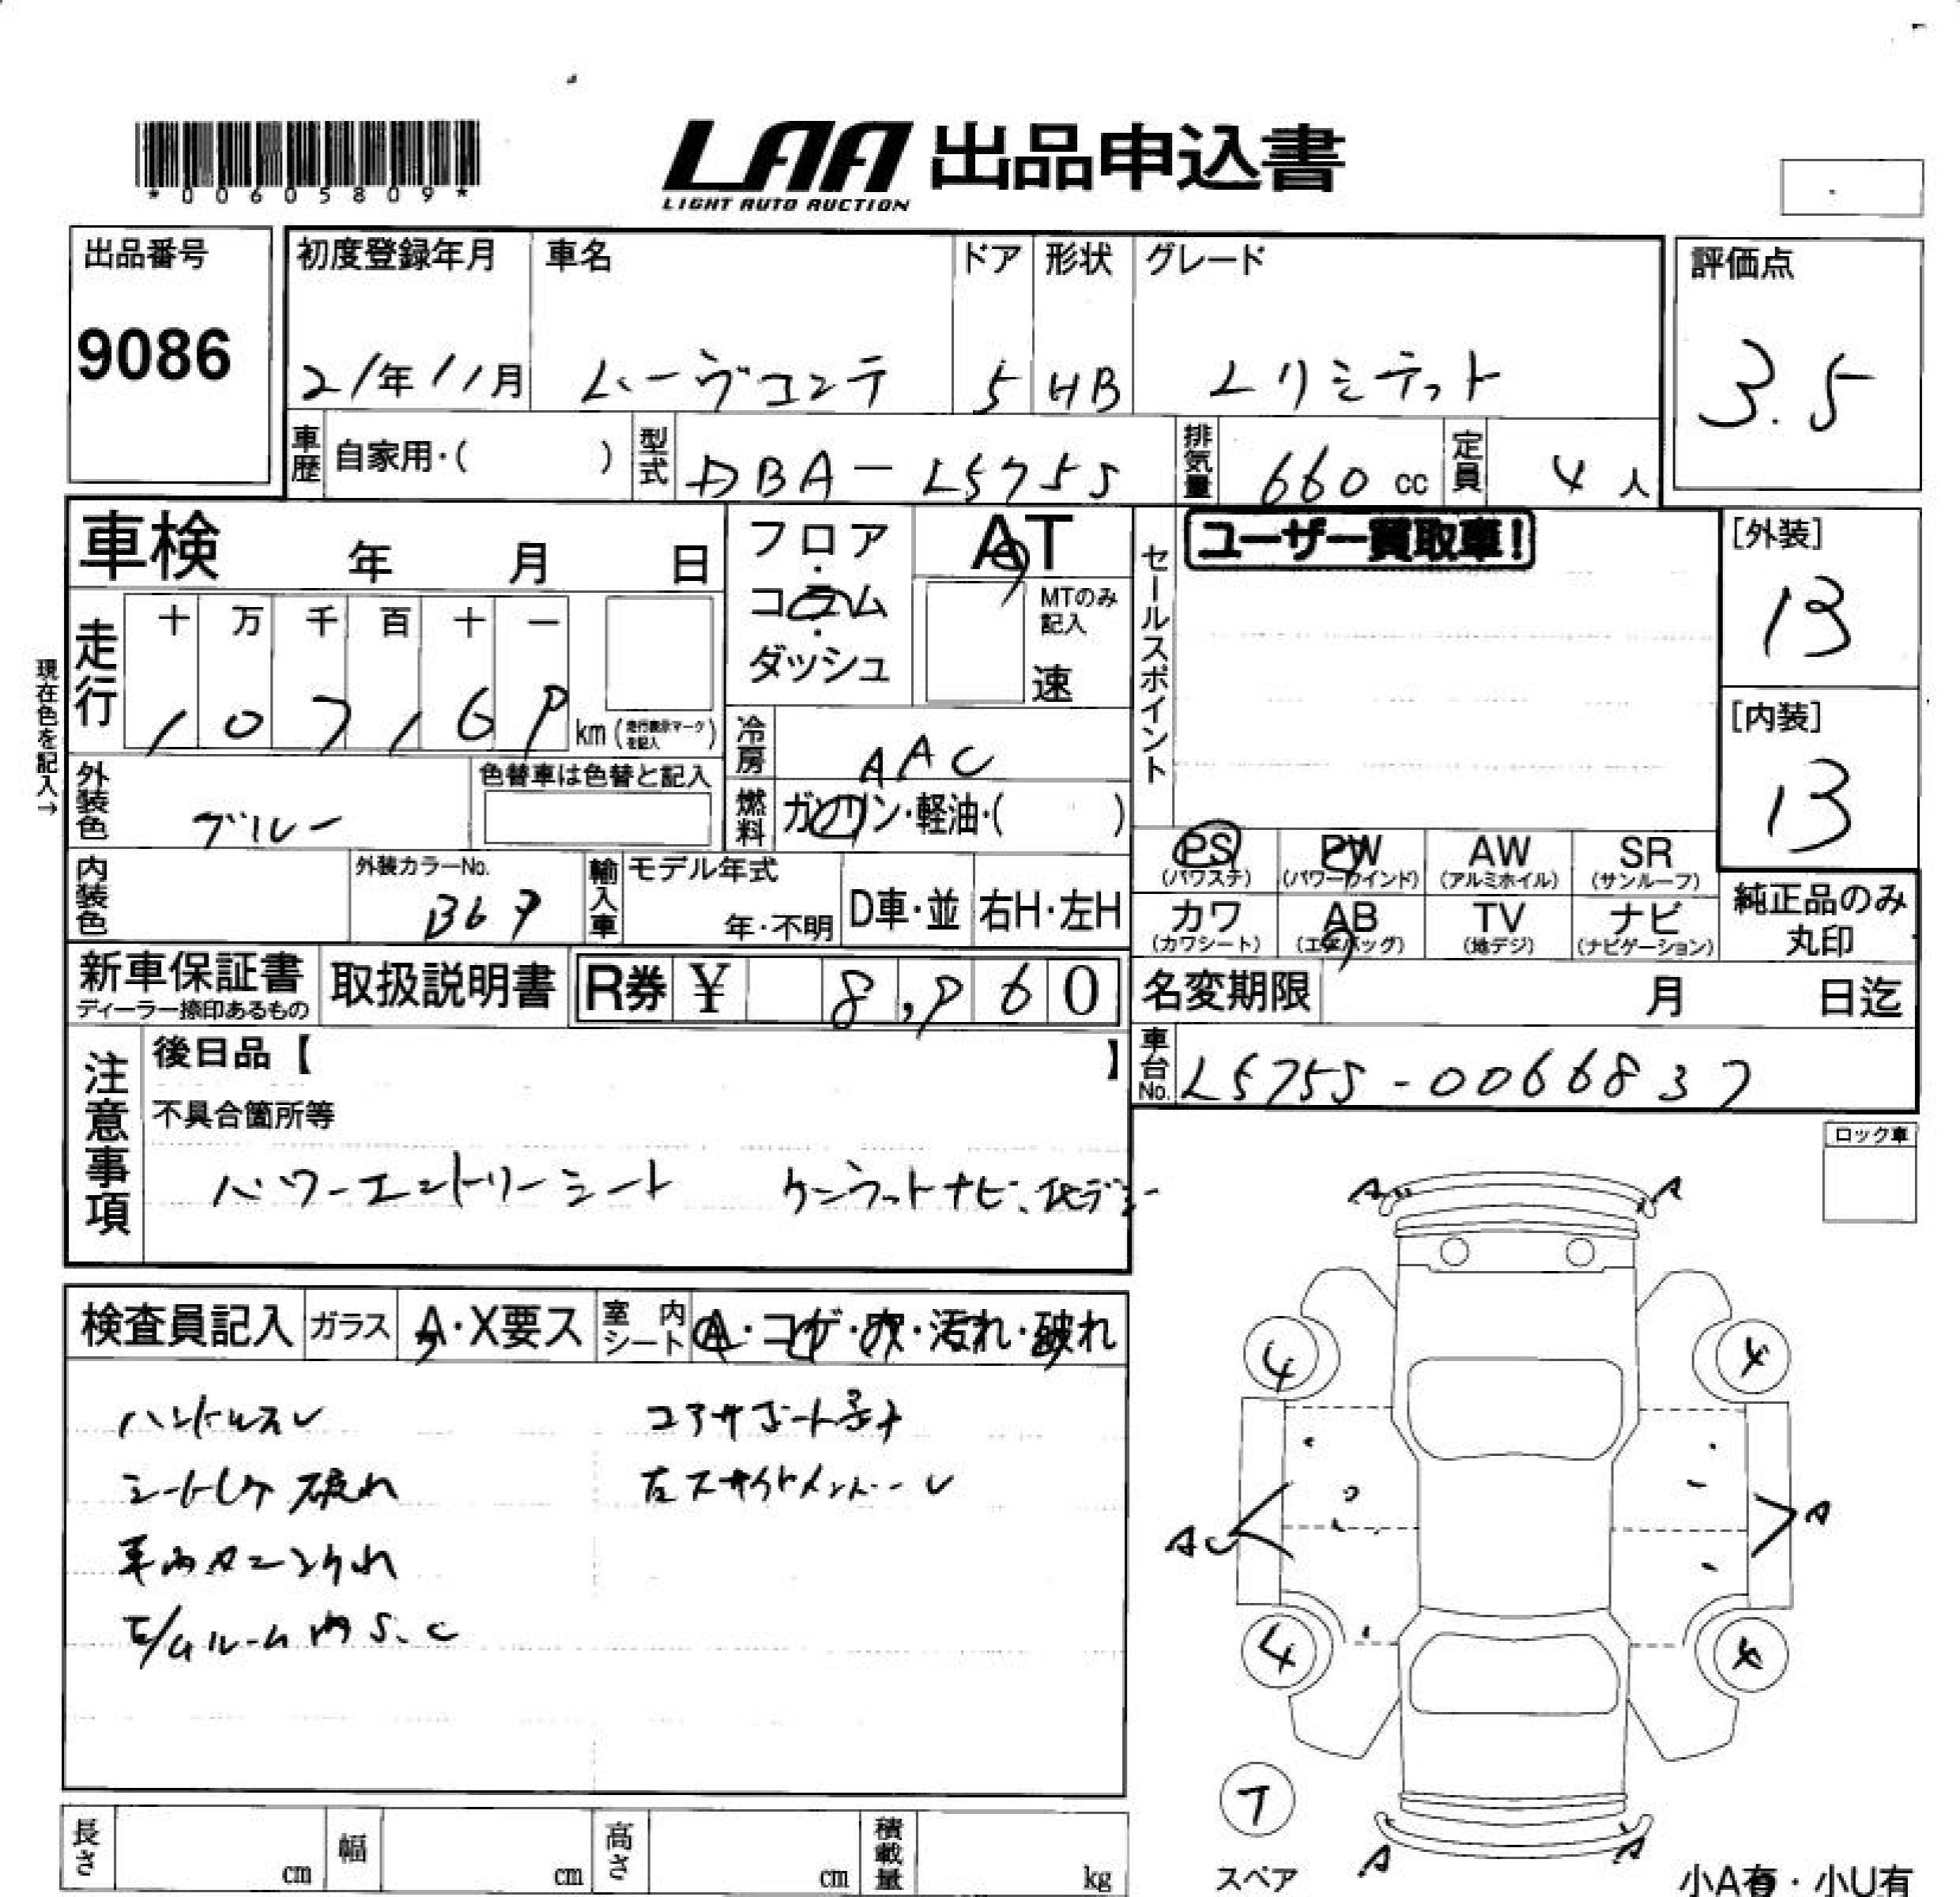 *00605809*
LAA 出品申込書
LIGHT AUTO AUCTION
出品番号
9086
初度登録年月
21年11月
車名
ムーヴコンテ
ドア
5
形状
HB
グレード
Lリミテット
評価点
3.5
車歴 自家用・( )
型式 DBA-L575S
排気量 660 cc
定員 4 人
車検 年 月 日
フロア・コラム・ダッシュ
AT
MTのみ記入
速
セールスポイント
ユーザー買取車!
[外装]
B
[内装]
B
現在色を記入→
走行
十 万 千 百 十 一
1 0 7 1 6 9 km (走行表示マークを記入)
冷房 AAC
外装色 ブルー
色替車は色替と記入
燃料 ガソリン・軽油・( )
内装色
外装カラーNo.
B69
輸入車
モデル年式
年・不明
D車・並
右H・左H
PS (パワステ)
PW (パワーウインド)
AW (アルミホイル)
SR (サンルーフ)
カワ (カワシート)
AB (エアバッグ)
TV (地デジ)
ナビ (ナビゲーション)
純正品のみ
丸印
新車保証書
ディーラー捺印あるもの
取扱説明書
R券 ¥ 8,960
名変期限 月 日迄
車台No. L575S-0066837
注意事項
後日品【 】
不具合箇所等
パワーエントリーシート ケンウットナビ、地デジ
ロック車
検査員記入
ガラス A・X要ス
室内シート A・コゲ・穴・汚れ・破れ
ハンドルスレ
コアサポートSナ
シートコケ 破れ
E/Gルーム内 S.C
A A
4 4
A A
4 4
T
スペア
A A
小A有・小U有
長さ cm
幅 cm
高さ cm
積載量 kg